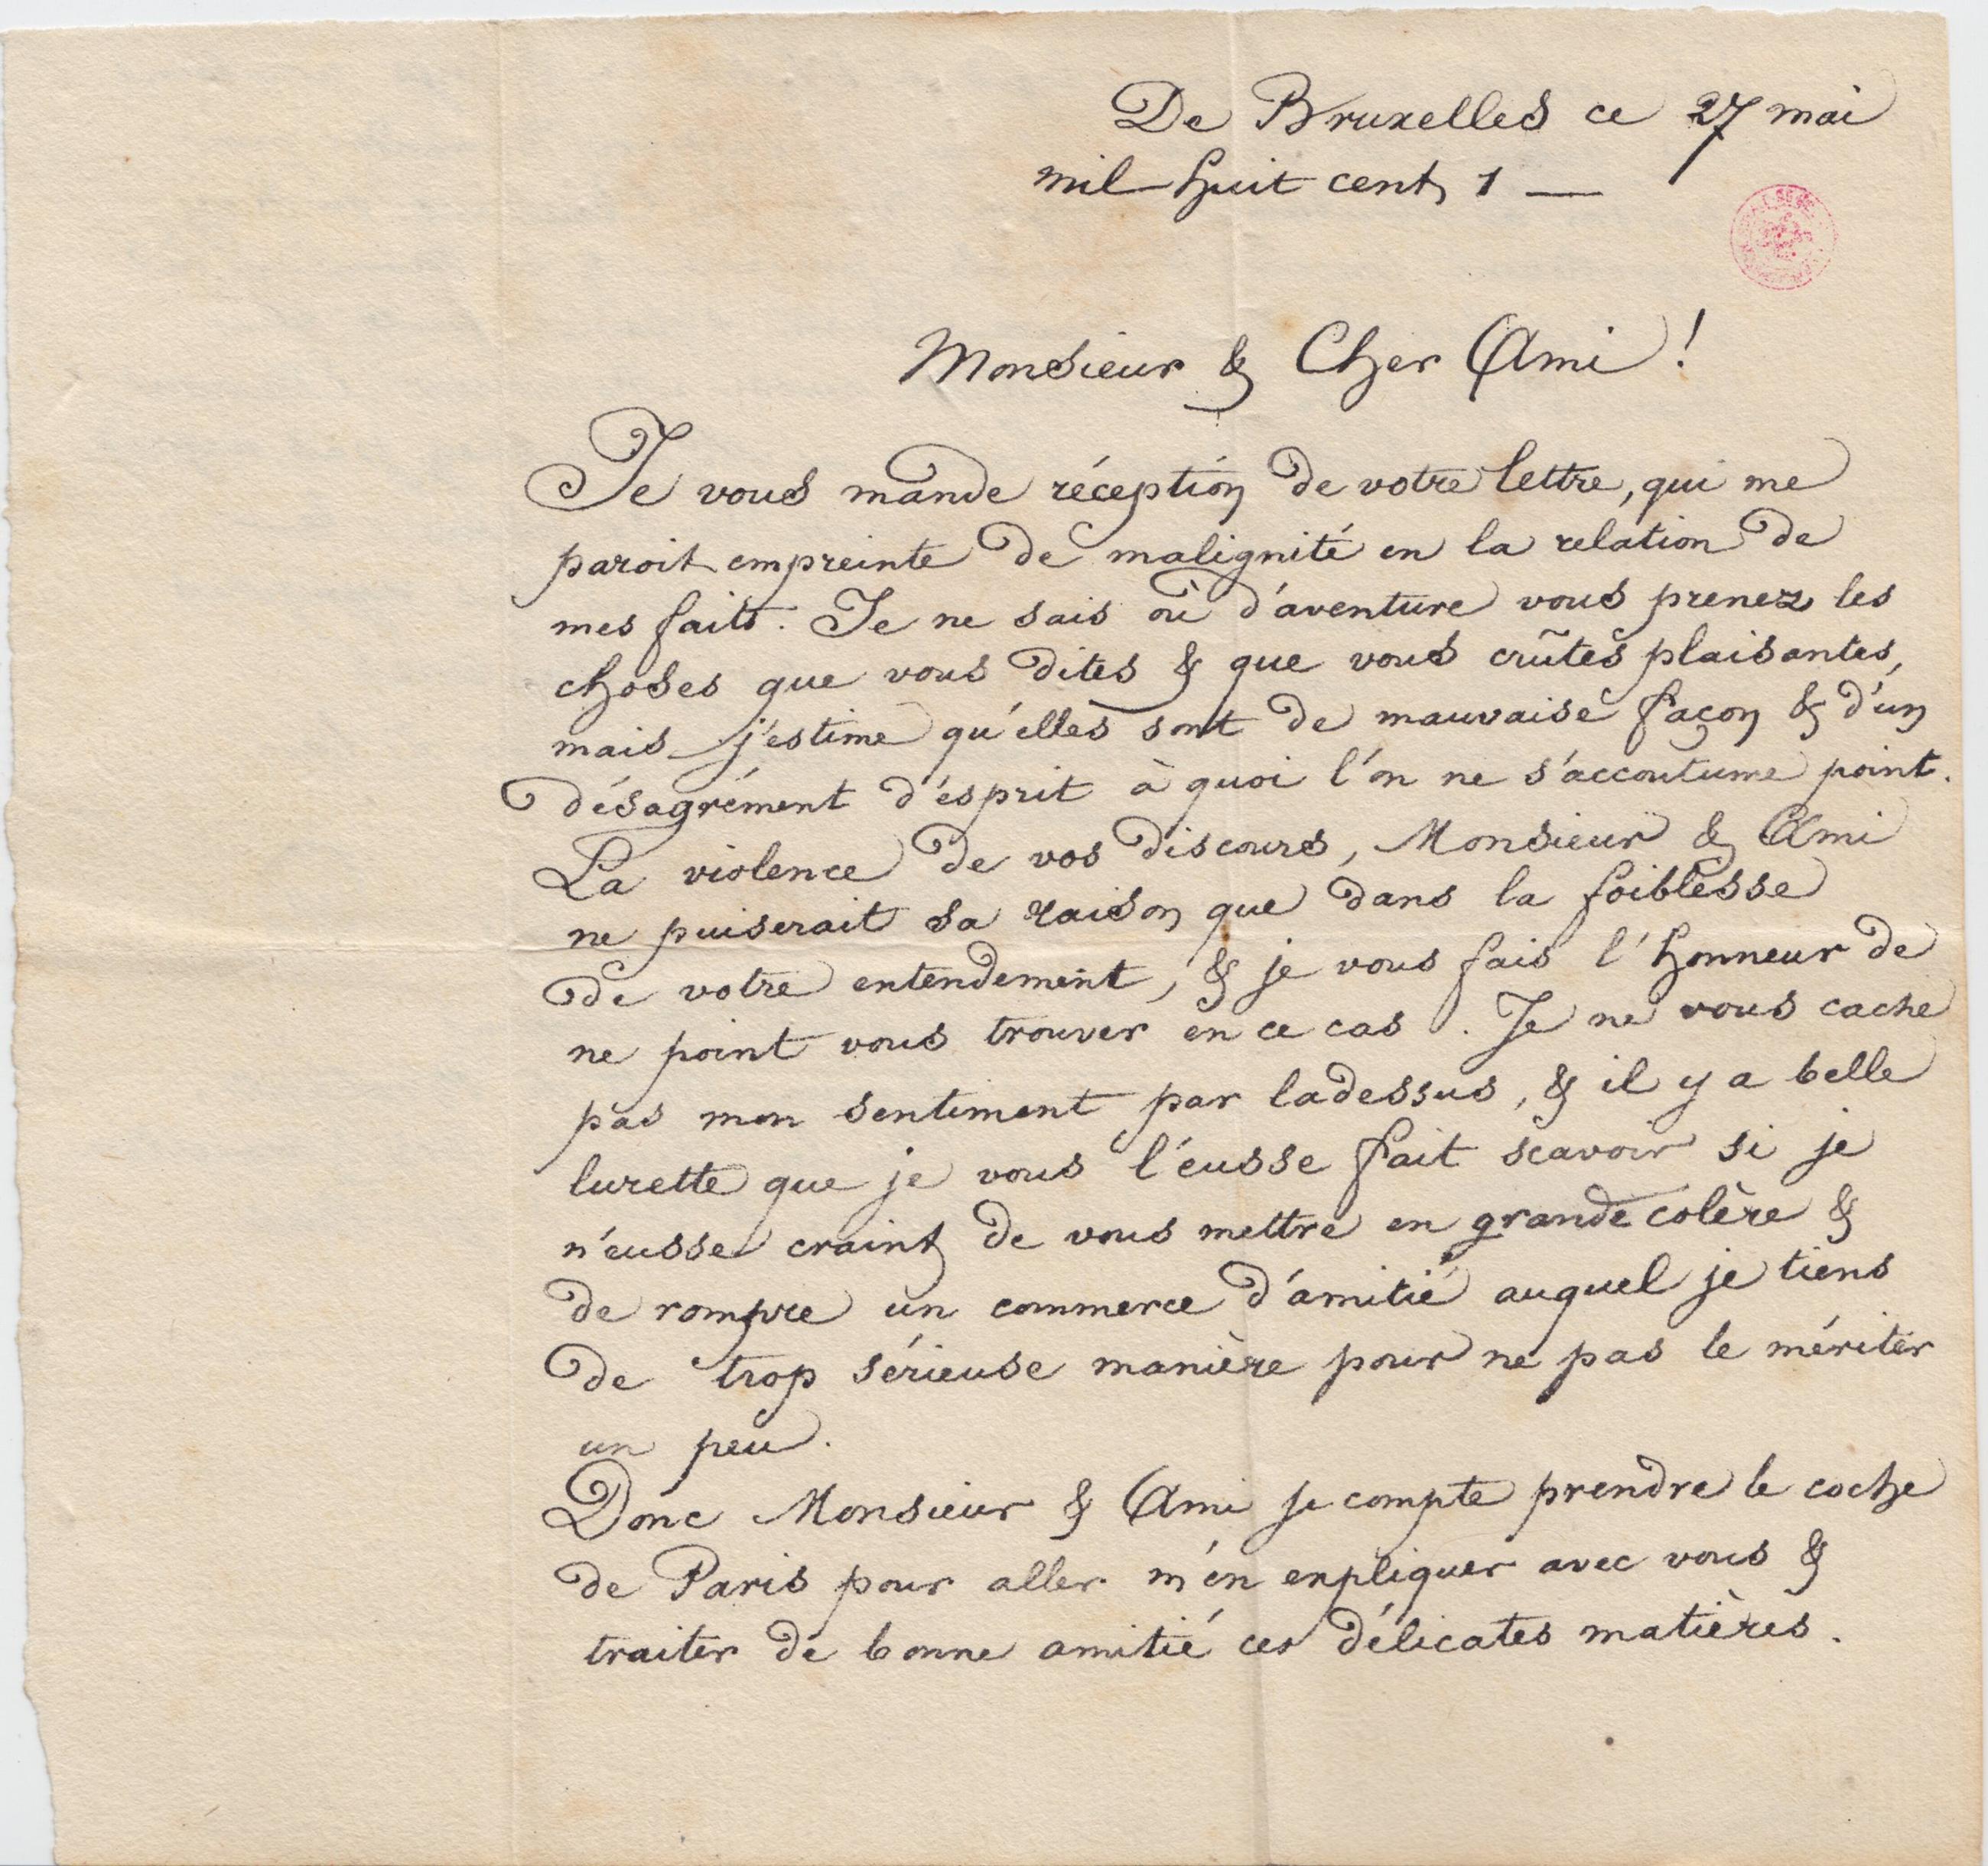 De Bruxelles ce 27 mai
mil huit cent 1 —
Monsieur & Cher Ami !
Je vous mande réception de votre lettre, qui me
paroit empreinte de malignité en la relation de
mes faits. Je ne sais où d'aventure vous prenez les
choses que vous dites & que vous crûtes plaisantes,
mais j'estime qu'elles sont de mauvaise façon & d'un
désagrément d'ésprit à quoi l'on ne s'accoutume point.
La violence de vos discours, Monsieur & Ami
ne puiserait sa raison que dans la foiblesse
de votre entendement, & je vous fais l'honneur de
ne point vous trouver en ce cas. Je ne vous cache
pas mon sentiment par ladessus, & il y a belle
lurette que je vous l'eusse fait scavoir si je
n'eusse craint de vous mettre en grande colère &
de rompre un commerce d'amitié auquel je tiens
de trop sérieuse manière pour ne pas le mériter
un peu.
Donc Monsieur & Ami je compte prendre le coche
de Paris pour aller m'en expliquer avec vous &
traiter de bonne amitié ces délicates matières.